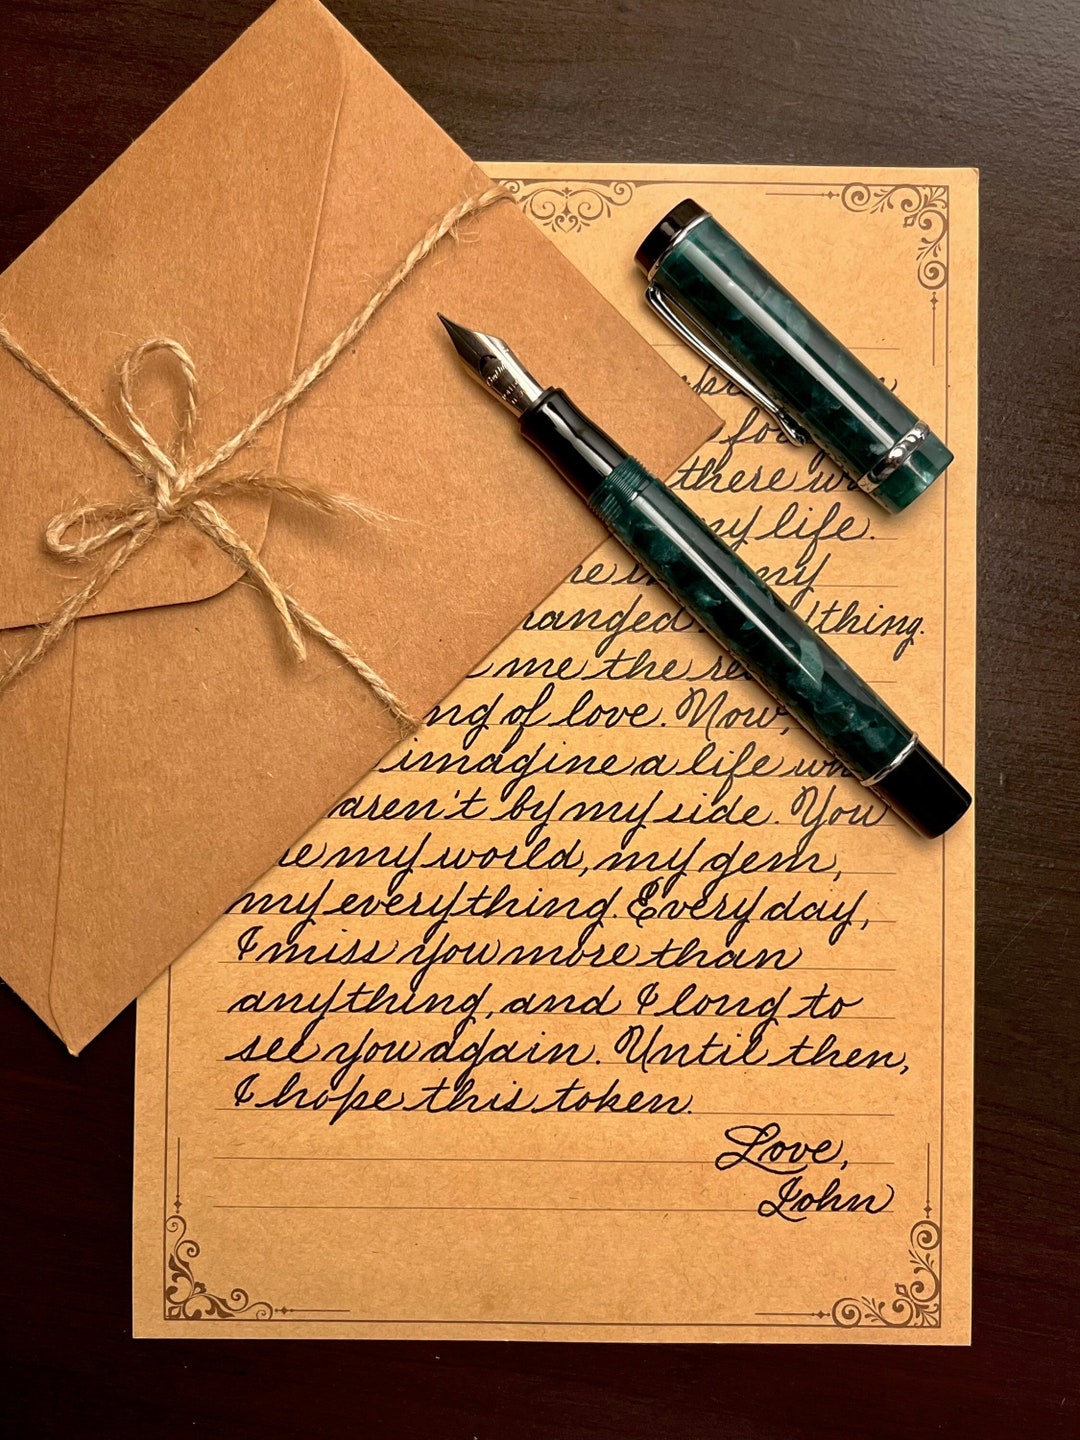 there
my life.
my
thing.
me the
of love. Now,
imagine a life
aren't by my side. You
my world, my gem,
my everything. Every day,
I miss you more than
anything, and I long to
see you again. Until then,
I hope this token.
Love,
John